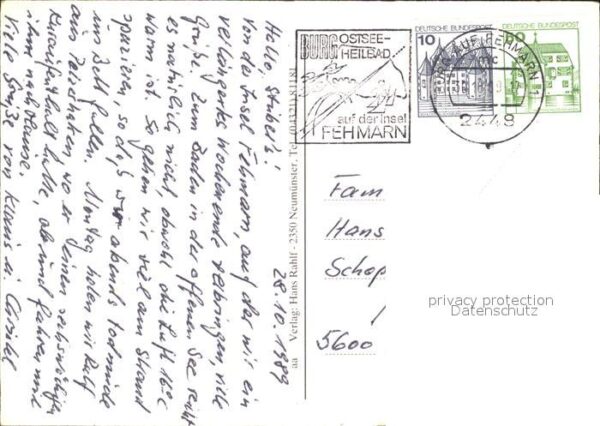 28.10.1989
Hallo,
von der Insel Fehmarn, auf der wir ein
verlängertes Wochenende verbringen, viele
Grüße. Zum Baden in der offenen See reicht
es natürlich nicht, obwohl die Luft 16°C
warm ist. So gehen wir viel am Strand
spazieren, so daß wir abends todmüde
ins Bett fallen. Montag holen wir Ralf
aus wo er seinen sechswöchigen
Kuraufenthalt hatte, ab und fahren mit
ihm nach Hause.
Viele Grüße von Klaus u.
aa Verlag: Hans Rahlf - 2350 Neumünster, Tel. (04321) 81181
BURG
OSTSEE-
HEILBAD
auf der Insel
FEHMARN
10 DEUTSCHE BUNDESPOST
DEUTSCHE BUNDESPOST
BURG AUF FEHMARN
2448
Fam
Hans
Schop
5600
privacy protection
Datenschutz